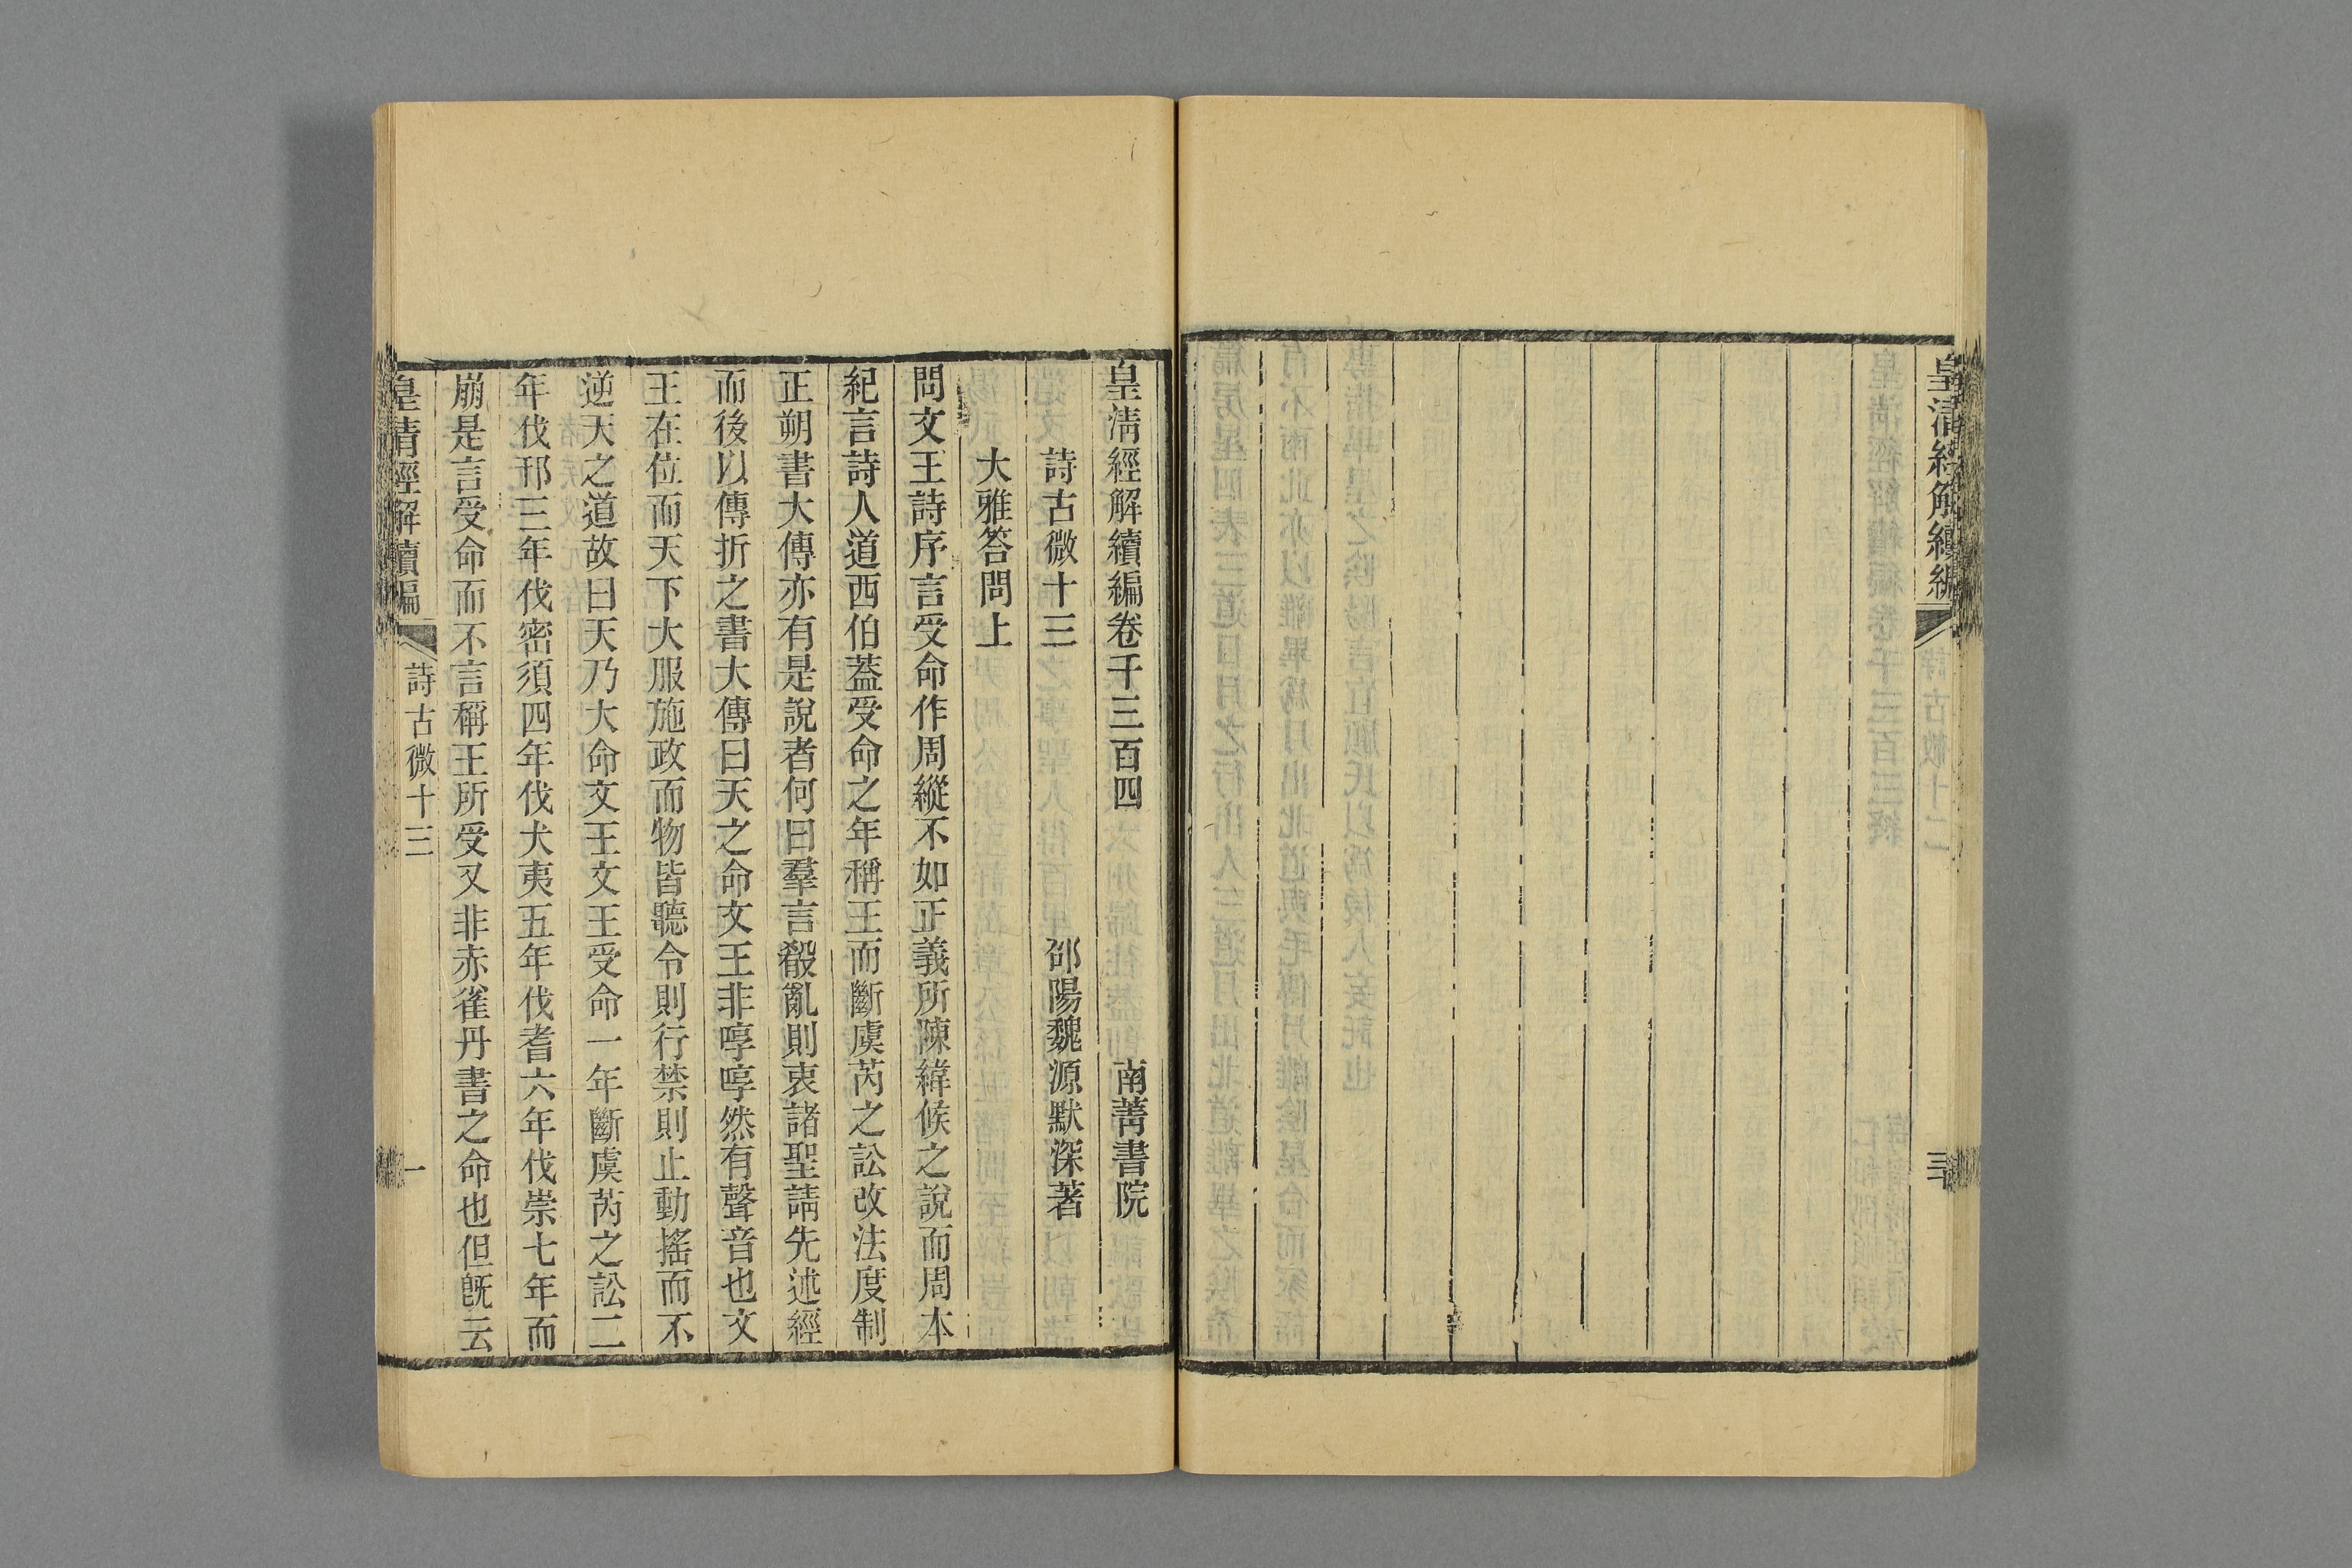 皇清經解續編
三十
皇清經解續編卷千三百四
南菁書院
詩古微十三
邵陽魏源默深著
大雅答問上
問文王詩序言受命作周縱不如正義所陳緯候之說而周本
紀言詩人道西伯蓋受命之年稱王而斷虞芮之訟改法度制
正朔書大傳亦有是說者何曰羣言殽亂則衷諸聖請先述經
而後以傳折之書大傳曰天之命文王非啍啍然有聲音也文
王在位而天下大服施政而物皆聽令則行禁則止動搖而不
逆天之道故曰天乃大命文王文王受命一年斷虞芮之訟二
年伐邘三年伐密須四年伐犬夷五年伐耆六年伐崇七年而
崩是言受命而不言稱王所受又非赤雀丹書之命也但旣云
皇清經解續編
詩古微十三
一